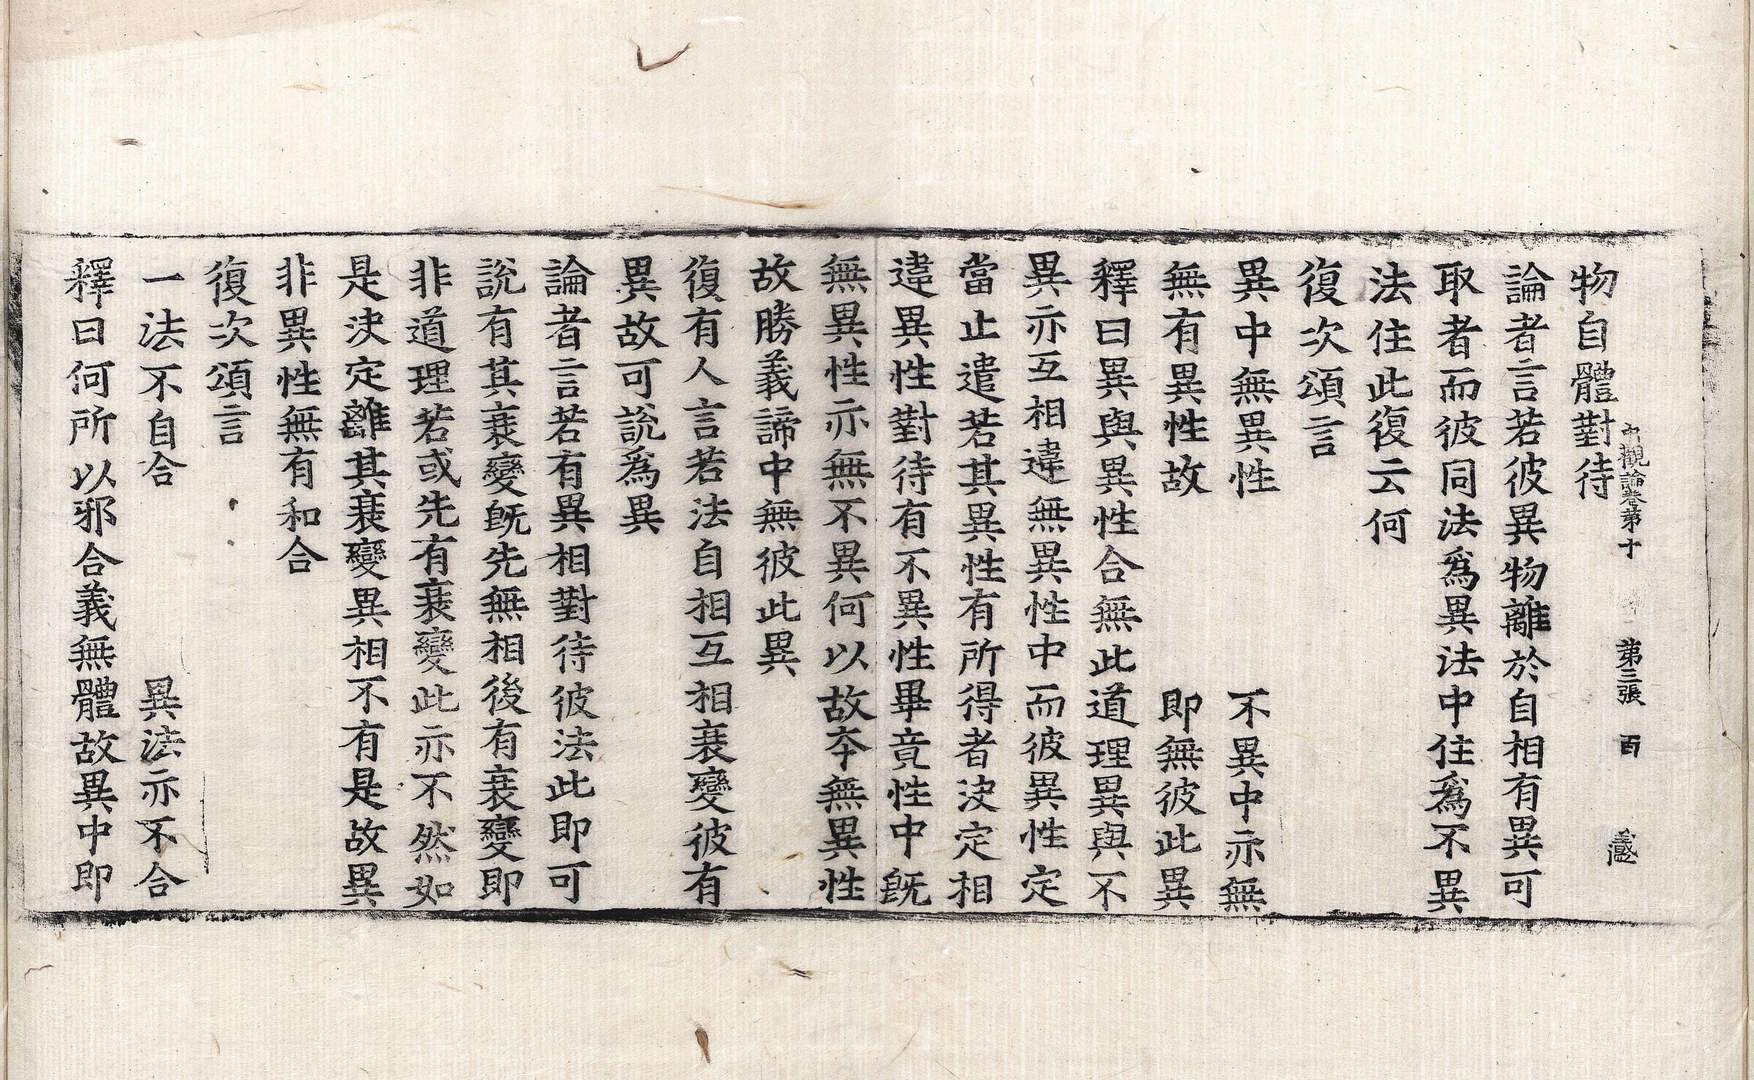 中觀論卷第十 第三張 百 盛
物自體對待
論者言若彼異物離於自相有異可
取者而彼同法爲異法中住爲不異
法住此復云何
復次頌言
異中無異性 不異中亦無
無有異性故 即無彼此異
釋曰異與異性合無此道理異與不
異亦互相違無異性中而彼異性定
當止遣若其異性有所得者決定相
違異性對待有不異性畢竟性中旣
無異性亦無不異何以故本無異性
故勝義諦中無彼此異
復有人言若法自相互相衰變彼有
異故可說爲異
論者言若有異相對待彼法此即可
說有其衰變旣先無相後有衰變即
非道理若或先有衰變此亦不然如
是決定離其衰變異相不有是故異
非異性無有和合
復次頌言
一法不自合 異法亦不合
釋曰何所以邪合義無體故異中即